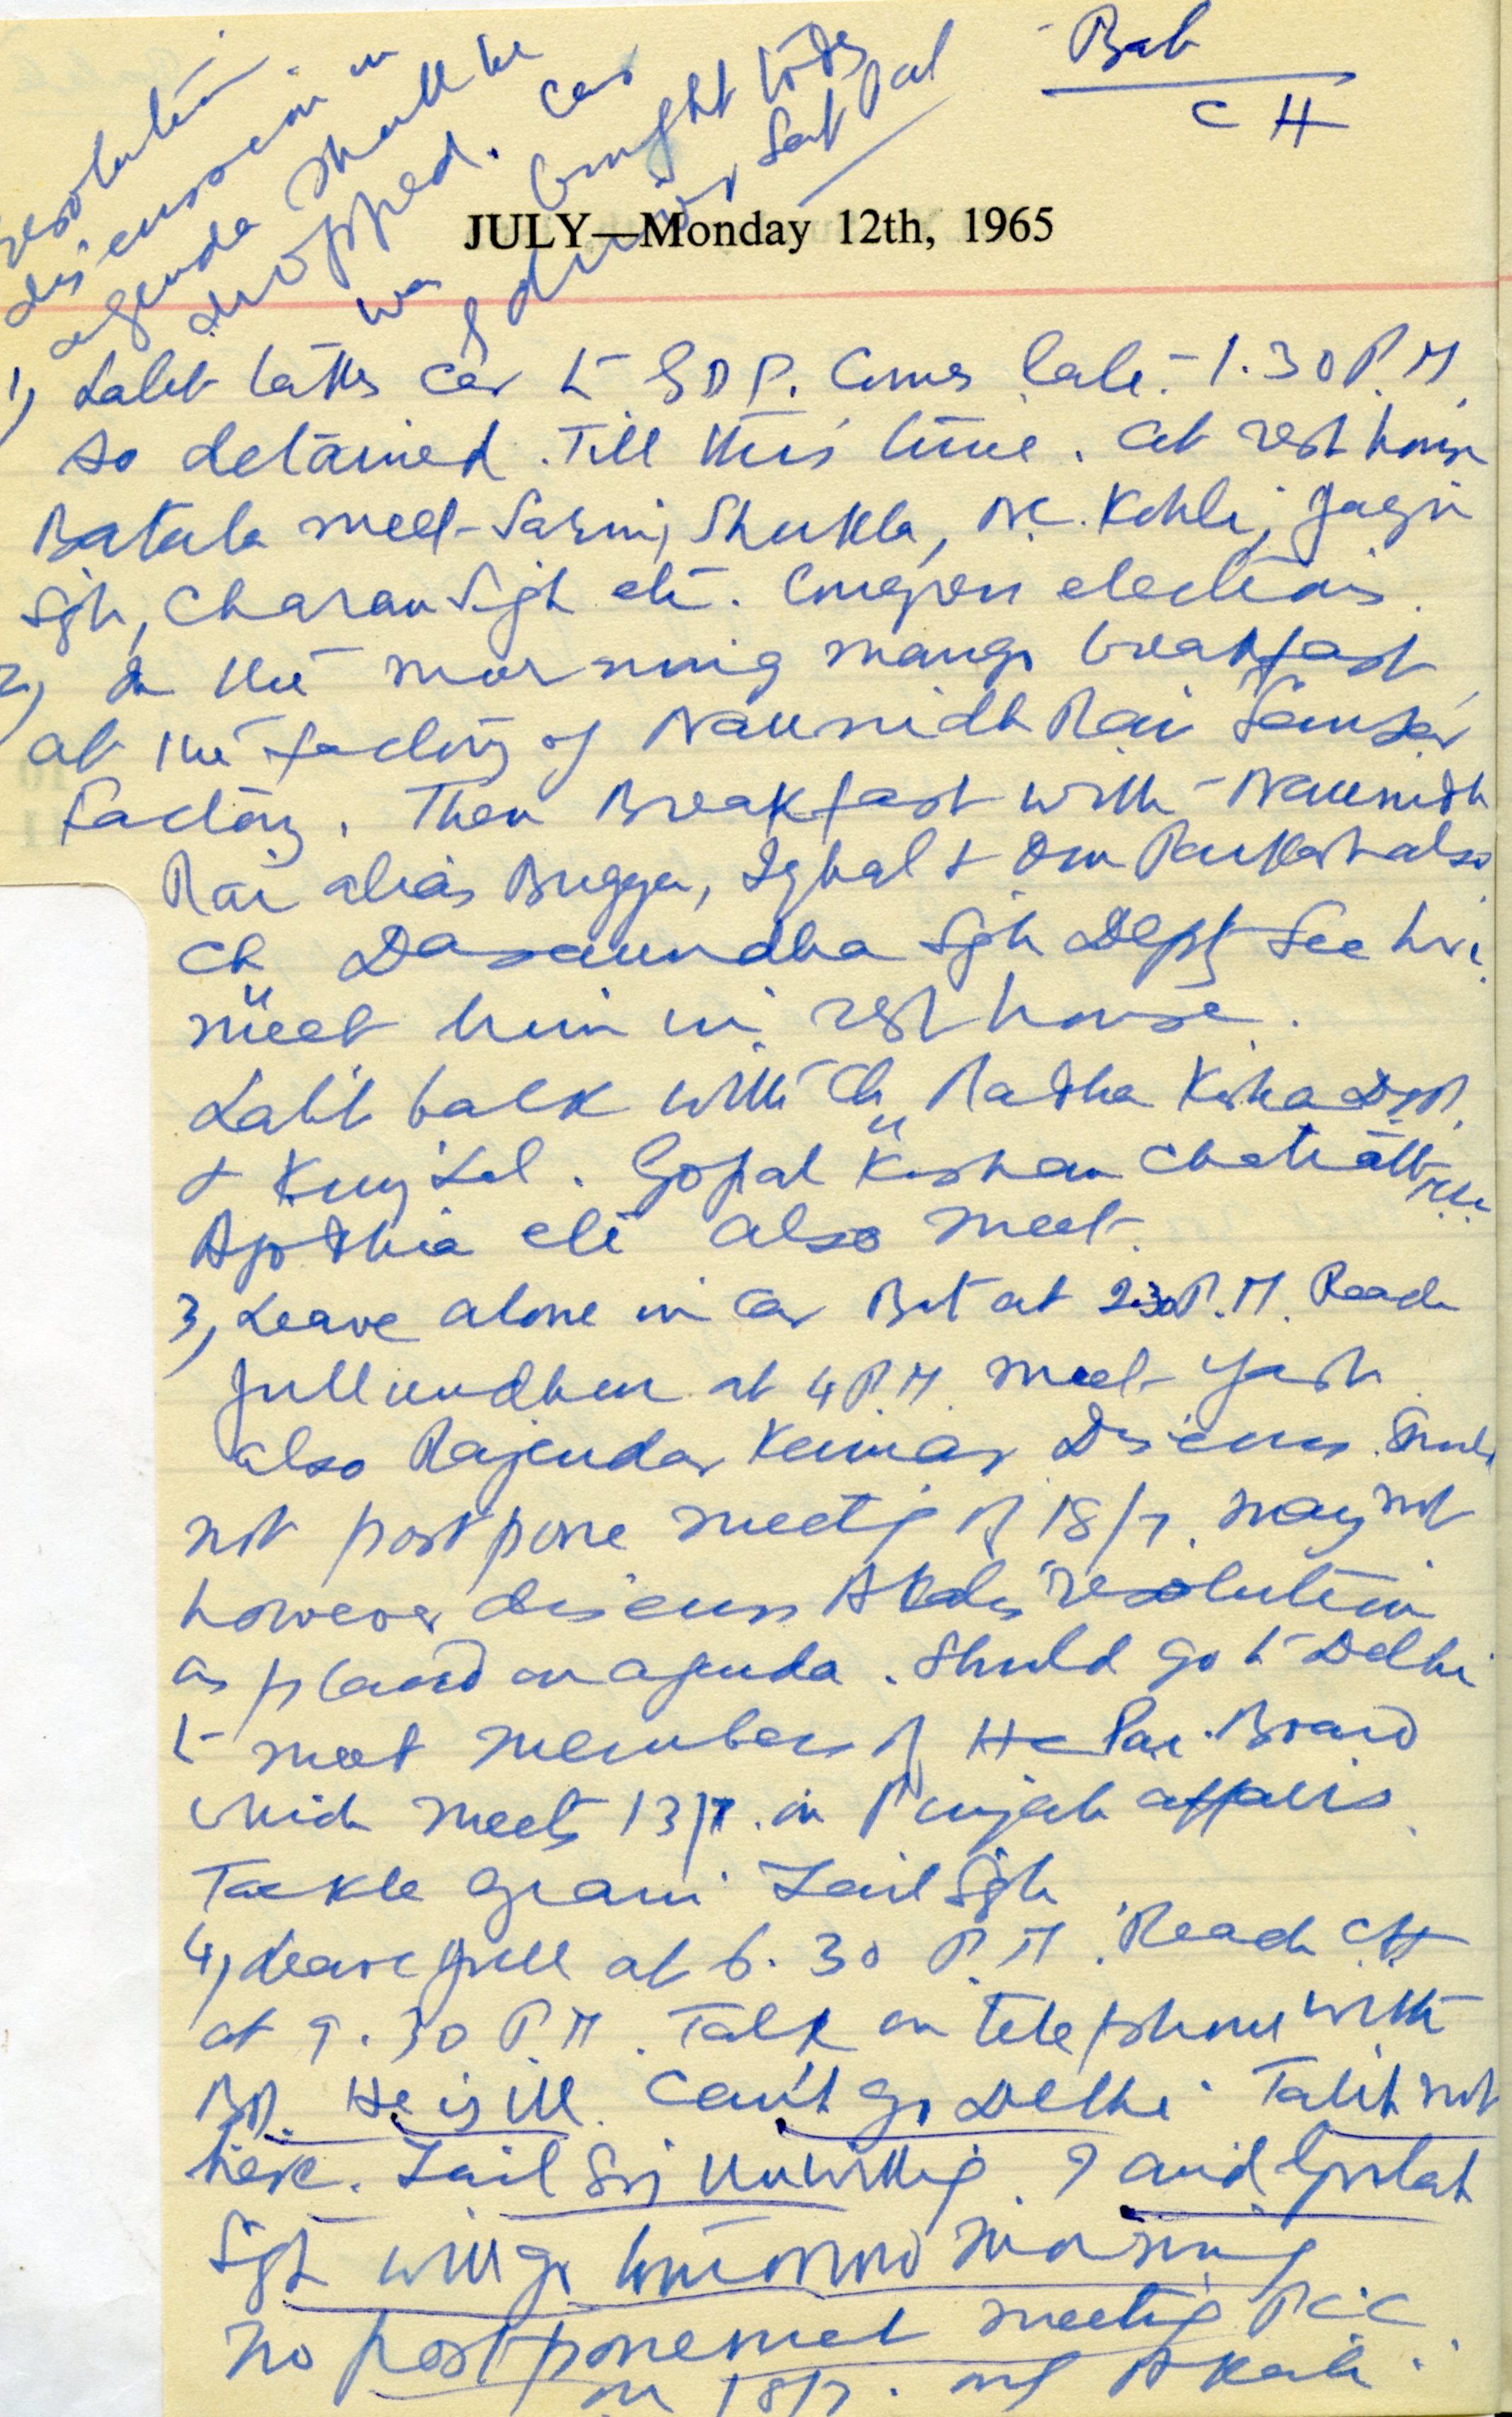 Bat
CH
JULY—Monday 12th, 1965
1) Lalit takes car to GDP. Comes late - 1.30 P.M.
so detained. Till this time. At rest house
Batala meet - Sarin, Shukla, Kohli, Jagir
Sgh, Charan Sigh etc. Congress elections.
2) In the morning mango breakfast
at the factory of Naunidh Rai
factory. Then Breakfast with - Naunidh
Rai alias Bugga, Iqbal + Om Parkash also
Ch Dasaundha Sgh Depty
meet him in rest house.
Lalit talk with Ch Radha
+ Kunj Lal. Gopal Kishan
etc also meet.
3) Leave alone in Car Bat at 2.30 P.M. Reach
Jullundhur at 4 P.M. meet - Yash.
also Rajendar Kumar Discuss. Should
not postpone meetig of 18/7. may not
however discuss Akali resolution
as placed on agenda. Should go to Delhi
to meet members of Hc Par. Board
which meets 13/7. on Punjab affairs.
Tackle Giani Zail Sgh
4) Leave Jull at 6.30 P.M. Reach CH
at 9.30 P.M. Talk on telephone with
He is ill. Can't go Delhi. Talib not
here. Zail Sig Unwillig. I and Gorbat
Sgh will go tomorrow morning
No postponement meetig PCC
on 18/7. only Akali
resolution
discussion in
agenda shall be
dropped. Car
was brought today
by driver Sat Pal